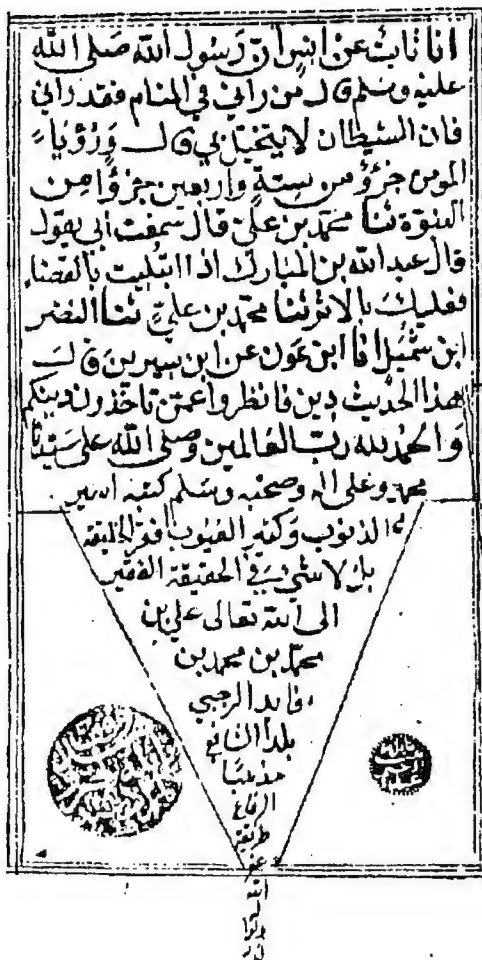 انا ثابت عن انس ان رسول الله صلى الله
عليه وسلم قال من رآني في المنام فقد رآني
فان الشيطان لا يتخيل بي قال ورؤيا
المومن جزؤ من ستة واربعين جزؤا من
النبوة ثنا محمد بن علي قال سمعت ابي يقول
قال عبد الله بن المبارك اذا ابتليت بالقضاء
فعليك بالاثر ثنا محمد بن علي ثنا النضر
ابن شميل انا ابن عون عن ابن سيرين قال
هذا الحديث دين فانظروا عمن تاخذون دينكم
والحمد لله رب العالمين وصلى الله على سيدنا
محمد وعلى اله وصحبه وسلم كتبه اسير
الذنوب وكثير العيوب افقر الخليقة
بل لا شيء في الحقيقة الفقير
الى الله تعالى علي بن
محمد بن محمد بن
قايد الرحبي
بلدا
مذهبا
طريقة
الله